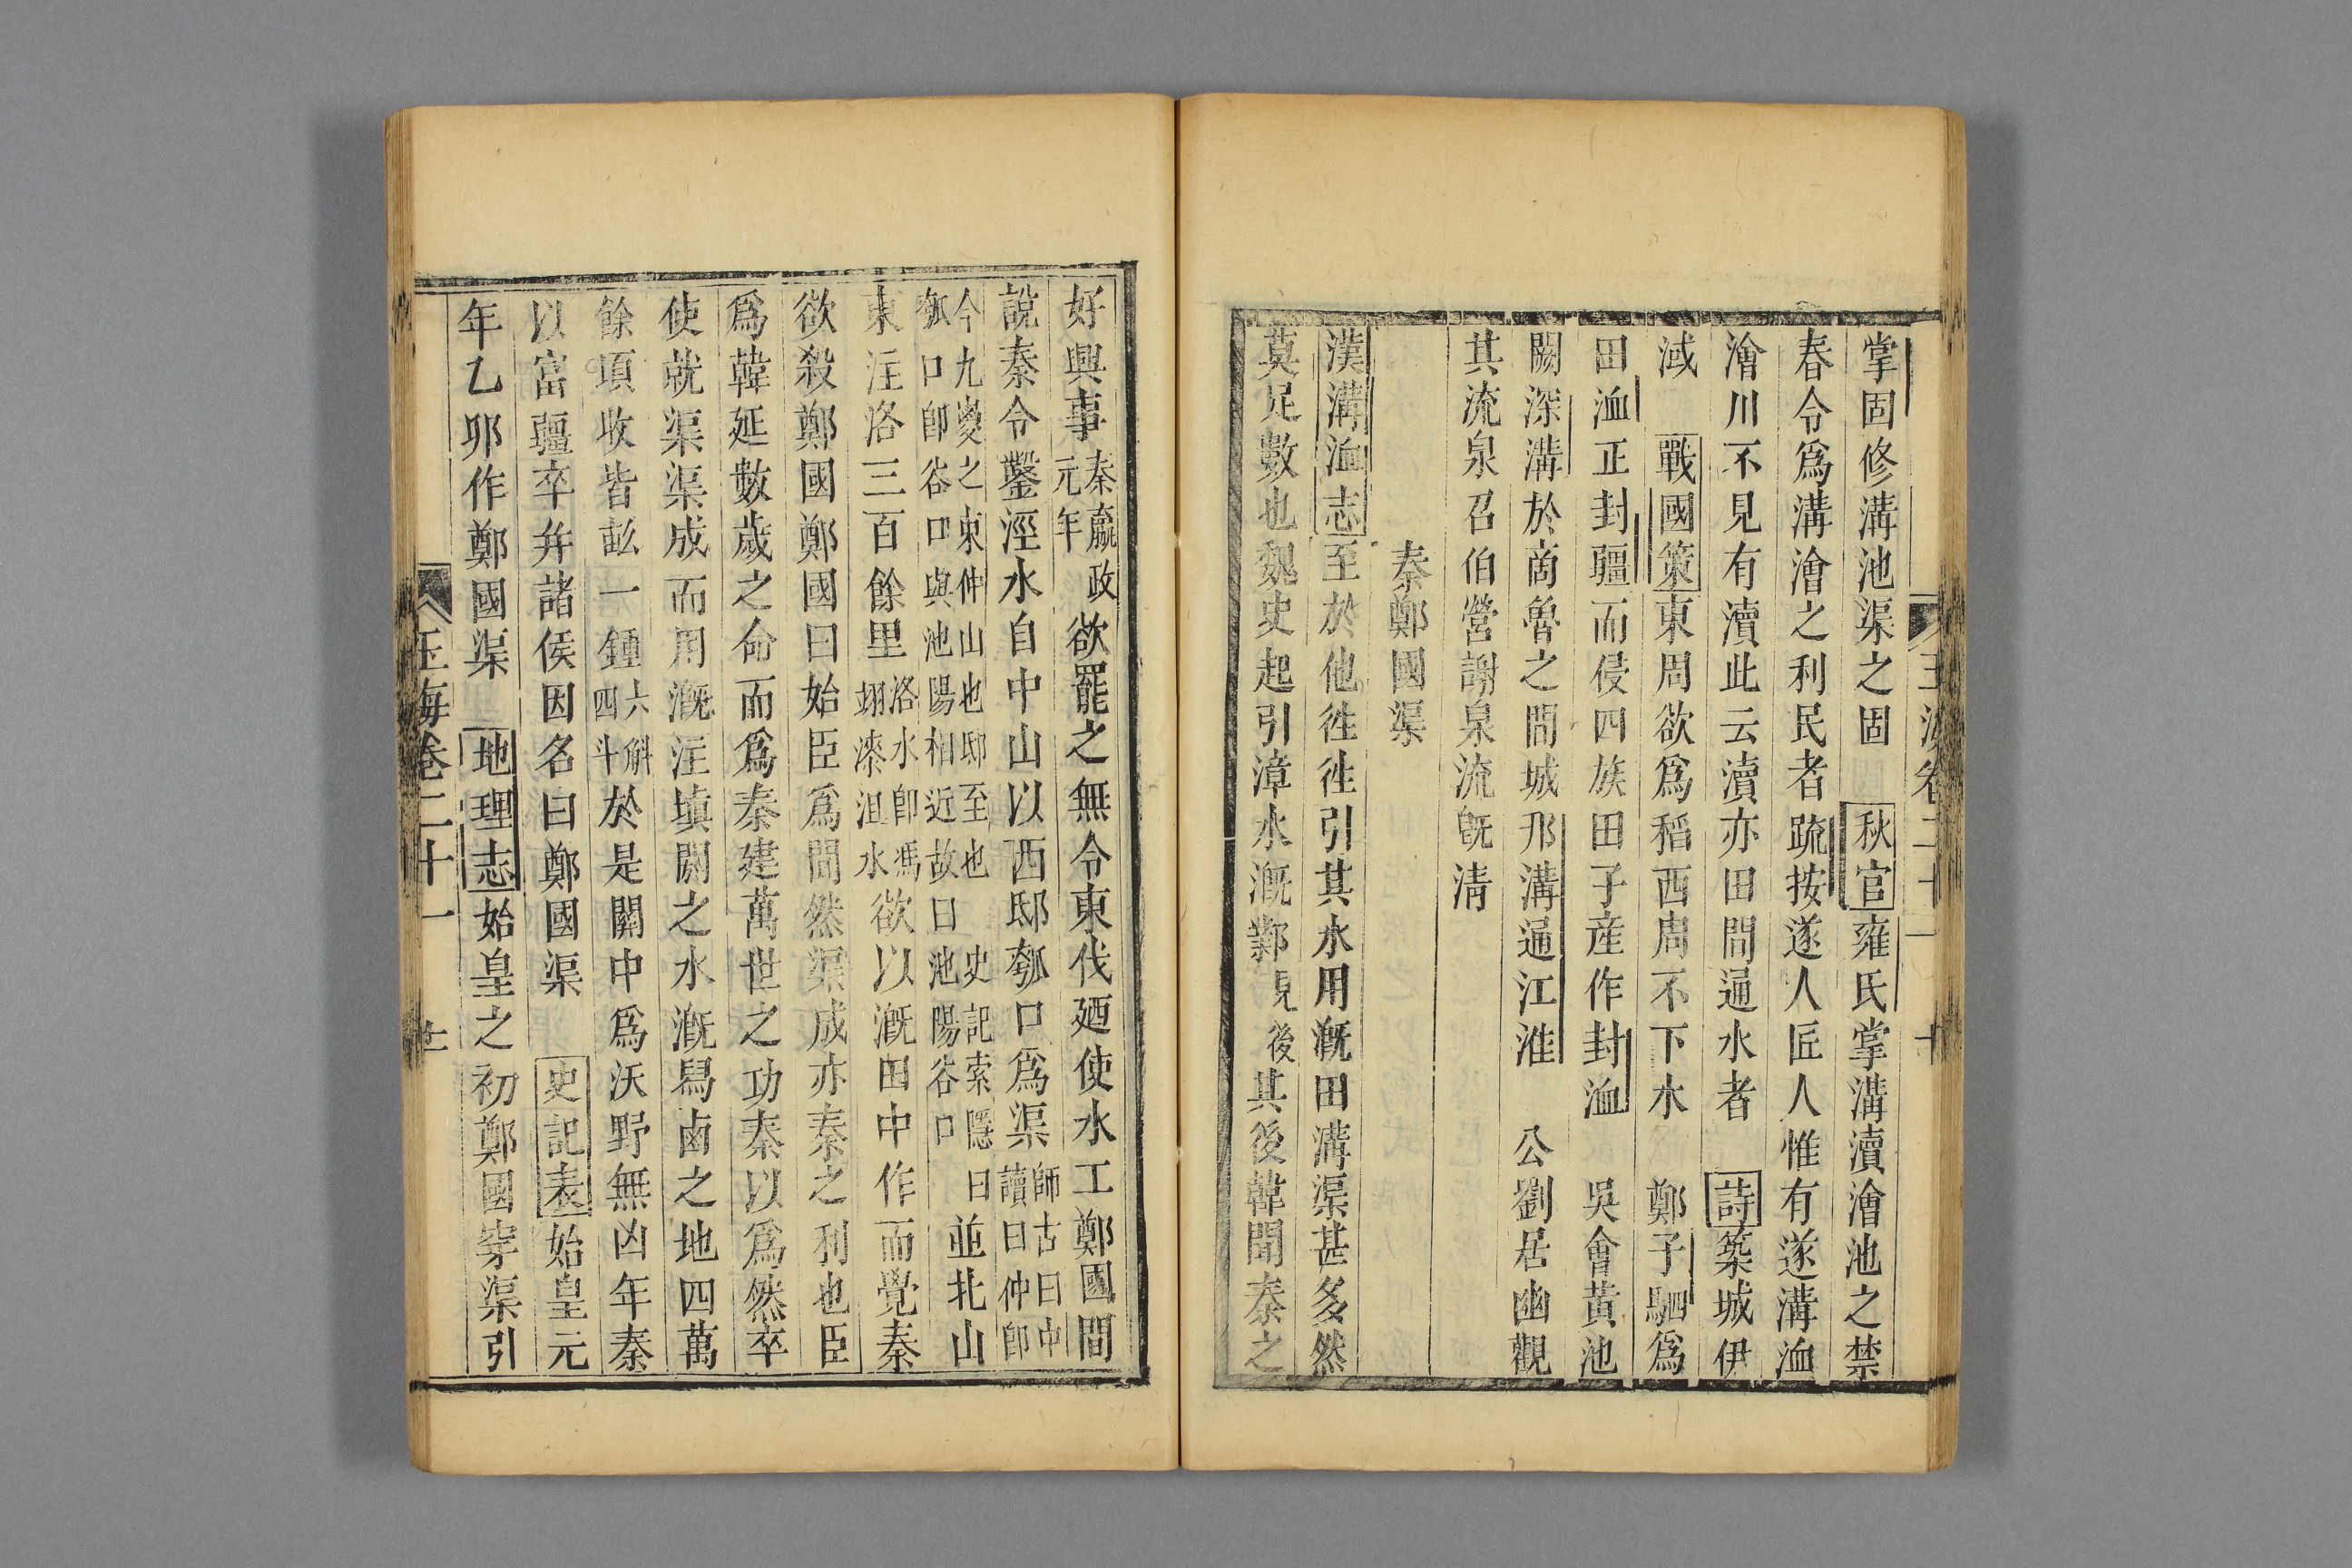 掌固修溝池渠之固　秋官雍氏掌溝瀆澮池之禁
春令爲溝澮之利民者疏按遂人匠人惟有遂溝洫
澮川不見有瀆此云瀆亦田間通水者　詩築城伊
淢　戰國策東周欲爲稻西周不下水　鄭子駟爲
田洫正封疆而侵四族田子産作封洫　吳會黃池
闕深溝於啇魯之間城邗溝通江淮　公劉居豳觀
其流泉召伯營謝泉流旣淸
秦鄭國渠
漢溝洫志至於他徃徃引其水用溉田溝渠甚多然
莫足數也魏史起引漳水溉鄴見後其後韓聞秦之
好興事秦嬴政元年欲罷之無令東伐廼使水工鄭國間
說秦令鑿涇水自中山以西邸瓠口爲渠師古曰中讀曰仲卽
今九嵏之東仲山也邸至也　史記索隱曰瓠口卽谷口與池陽相近故曰池陽谷口並北山
東注洛三百餘里洛水卽馮翊漆沮水欲以溉田中作而覺秦
欲殺鄭國鄭國曰始臣爲間然渠成亦秦之利也臣
爲韓延數歲之命而爲秦建萬世之功秦以爲然卒
使就渠渠成而用溉注填閼之水溉舄鹵之地四萬
餘頃收皆畝一鍾六斛四斗於是關中爲沃野無凶年秦
以富彊卒并諸侯因名曰鄭國渠　史記表始皇元
年乙卯作鄭國渠　地理志始皇之初鄭國穿渠引
玉海卷二十一